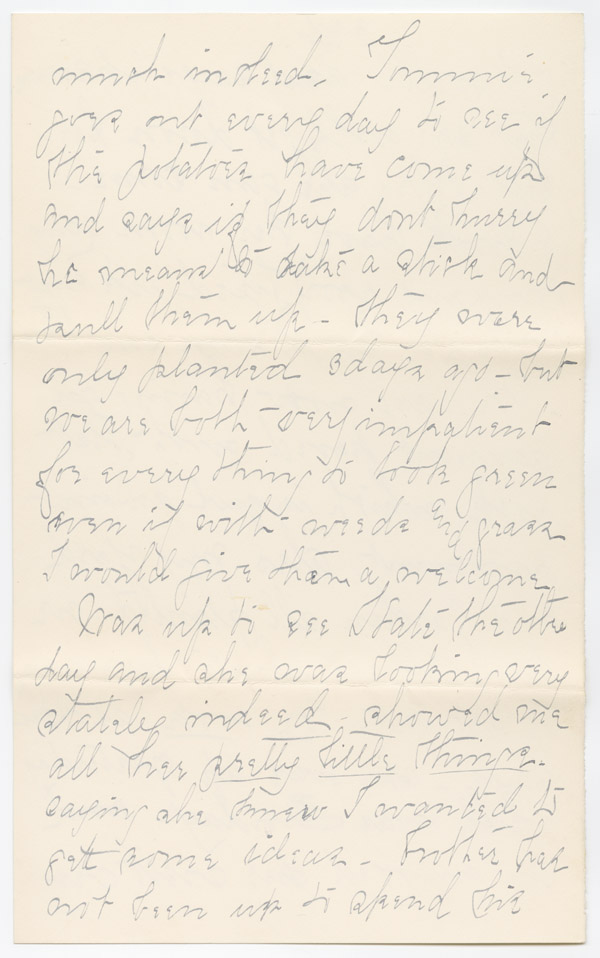 much indeed. Tommie
goes out every day to see if
the potatoes have come up
and says if they dont hurry
he means to take a stick and
pull them up - they were
only planted 3 days ago - but
we are both very impatient
for every thing to look green
even if with weeds and grass
I would give them a welcome.
Was up to see Kate the other
day and she was looking very
stately indeed - showed me
all her pretty little things -
saying she knew I wanted to
get some ideas - Brother has
not been up to spend his